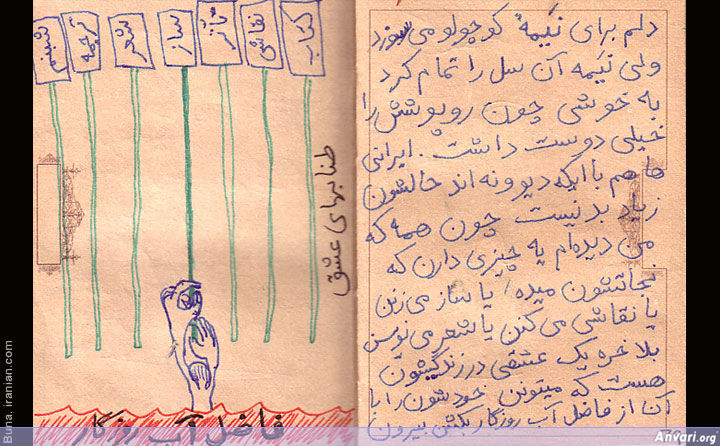 دلم برای نکیمه کوچولو می سوزد
ولی نکیمه آن سل را تمام کرد
به خوشی چون روپوشش را
خیلی دوست داشت. ایرانی
ها هم با اینکه دیوونه اند حالشون
زیاد بد نیست چون همه که
من دیده‌ام یه چیزی دارن که
نجاتشون میده/ یا ساز می زنن
یا نقاشی می کنن یا شعر می نویسن
بلاخره یک عشقی در زندگیشون
هست که میتونن خودشون را با
آن از فاضل آب روزگار بکشن بیرون
کتاب
نقاشی
تاتر
ساز
شعر
ترجمه
شبنم
طنابهای عشق
فاضل آب روزگار
Buna. iranian.com
Anvari.org